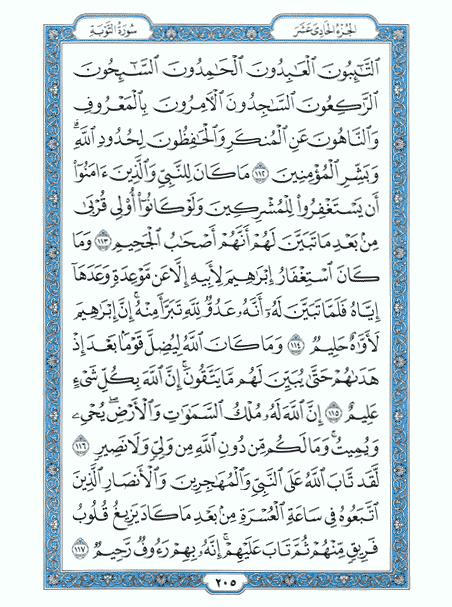 الجزء الحادي عشر
سورة التوبة
التَّٰٓئِبُونَ ٱلْعَٰبِدُونَ ٱلْحَٰمِدُونَ ٱلسَّٰٓئِحُونَ
ٱلرَّٰكِعُونَ ٱلسَّٰجِدُونَ ٱلْءَامِرُونَ بِٱلْمَعْرُوفِ
وَٱلنَّاهُونَ عَنِ ٱلْمُنكَرِ وَٱلْحَٰفِظُونَ لِحُدُودِ ٱللَّهِۗ
وَبَشِّرِ ٱلْمُؤْمِنِينَ ١١٢ مَا كَانَ لِلنَّبِيِّ وَٱلَّذِينَ ءَامَنُوٓا۟
أَن يَسْتَغْفِرُوا۟ لِلْمُشْرِكِينَ وَلَوْ كَانُوٓا۟ أُو۟لِى قُرْبَىٰ
مِنۢ بَعْدِ مَا تَبَيَّنَ لَهُمْ أَنَّهُمْ أَصْحَٰبُ ٱلْجَحِيمِ ١١٣ وَمَا
كَانَ ٱسْتِغْفَارُ إِبْرَٰهِيمَ لِأَبِيهِ إِلَّا عَن مَّوْعِدَةٍ وَعَدَهَآ
إِيَّاهُ فَلَمَّا تَبَيَّنَ لَهُۥٓ أَنَّهُۥ عَدُوٌّ لِّلَّهِ تَبَرَّأَ مِنْهُۚ إِنَّ إِبْرَٰهِيمَ
لَأَوَّٰهٌ حَلِيمٌ ١١٤ وَمَا كَانَ ٱللَّهُ لِيُضِلَّ قَوْمًۢا بَعْدَ إِذْ
هَدَىٰهُمْ حَتَّىٰ يُبَيِّنَ لَهُم مَّا يَتَّقُونَۚ إِنَّ ٱللَّهَ بِكُلِّ شَىْءٍ
عَلِيمٌ ١١٥ إِنَّ ٱللَّهَ لَهُۥ مُلْكُ ٱلسَّمَٰوَٰتِ وَٱلْأَرْضِۖ يُحْىِۦ
وَيُمِيتُۚ وَمَا لَكُم مِّن دُونِ ٱللَّهِ مِن وَلِىٍّ وَلَا نَصِيرٍ ١١٦
لَّقَد تَّابَ ٱللَّهُ عَلَى ٱلنَّبِىِّ وَٱلْمُهَٰجِرِينَ وَٱلْأَنصَارِ ٱلَّذِينَ
ٱتَّبَعُوهُ فِى سَاعَةِ ٱلْعُسْرَةِ مِنۢ بَعْدِ مَا كَادَ يَزِيغُ قُلُوبُ
فَرِيقٍ مِّنْهُمْ ثُمَّ تَابَ عَلَيْهِمْۚ إِنَّهُۥ بِهِمْ رَءُوفٌ رَّحِيمٌ ١١٧
٢٠٥